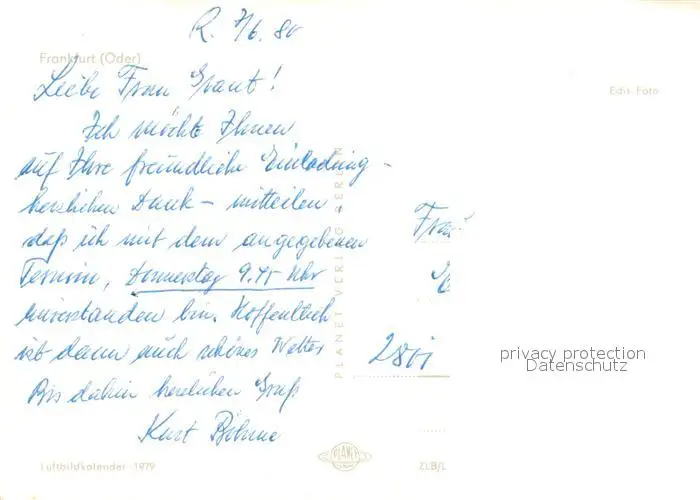 R. 7/6. 80
Frankfurt (Oder)
Liebe Frau Grant!
Edis Foto
Ich möchte Ihnen
auf Ihre freundliche Einladung -
herzlichen Dank - mitteilen
daß ich mit dem angegebenen
Termin, Donnerstag 9.45 Uhr
einverstanden bin. Hoffentlich
ist dann auch schönes Wetter
Bis dahin herzlichen Gruß
Kurt Böhme
PLANET VERLAG BERLIN
Frau
280
privacy protection
Datenschutz
Luftbildkalender 1979
PLANET
ZLB/L